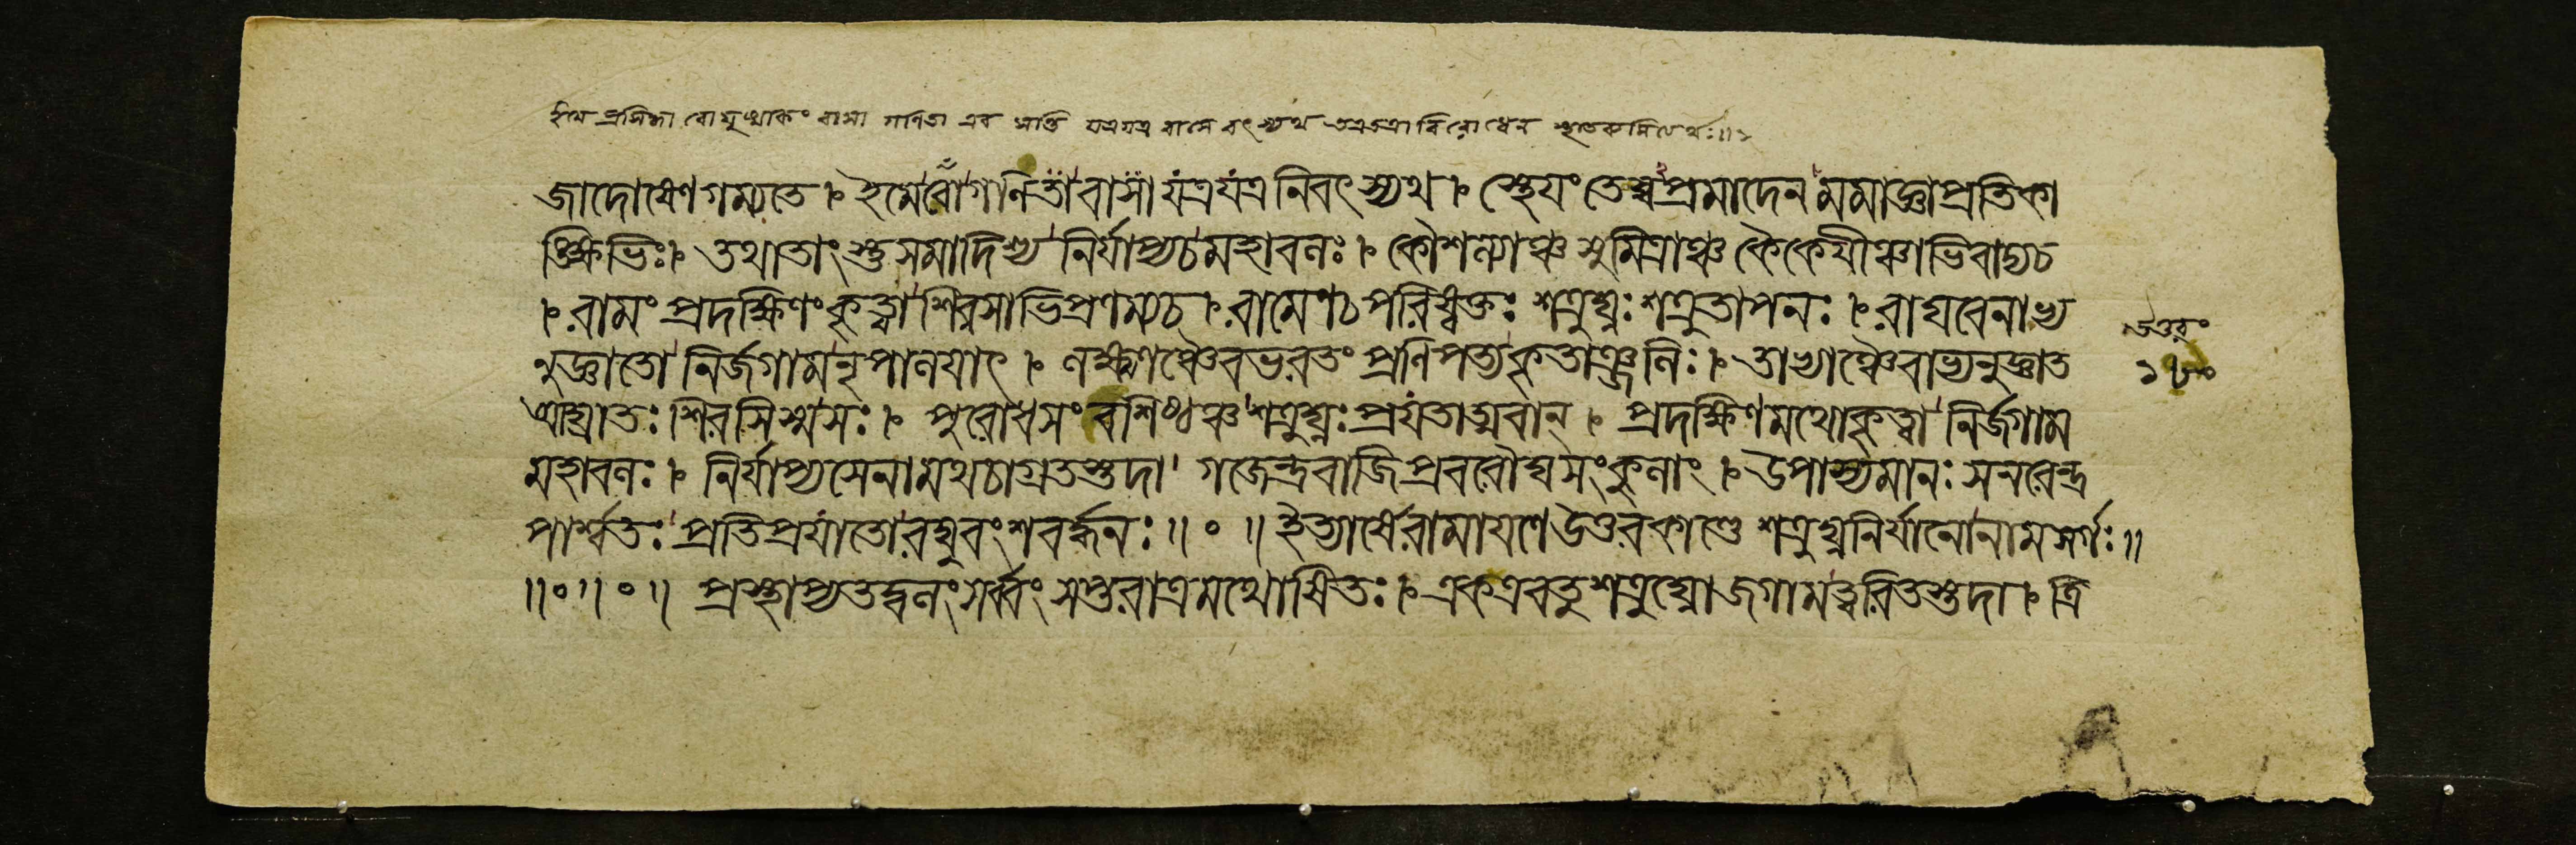 ইমে প্রসিদ্ধা বো যুষ্মাকং বাসা গণিতা এব সন্তি যত্রযত্র বাসে বৎস্যথ তত্রতত্রাবিরোধেন স্থাতব্যমিত্যর্থঃ॥
জাদোষেণ গম্যতে । ইমেবোগণিতাবাসা যত্রযত্র নিবৎস্যথ । স্থেয়ং তেষ্বপ্রমাদেন মমাজ্ঞাপ্রতিকা
ঙ্ক্ষিভিঃ । তথাতাংস্তুসমাদিশ্য নির্যাপ্যচমহাবলঃ । কৌশল্যাঞ্চ সুমিত্রাঞ্চ কৈকেয়ীঞ্চাভিবাদ্যচ
। রামং প্রদক্ষিণংকৃত্বা শিরসাভিপ্রণম্যচ । রামেণচপরিষ্বক্তঃ শত্রুঘ্নঃ শত্রুতাপনঃ । রাঘবেনাভ্য
নুজ্ঞাতো নির্জগামনৃপালয়াৎ । লক্ষ্মণঞ্চৈবভরতং প্রণিপত্যকৃতাঞ্জলিঃ । তাভ্যাঞ্চৈবাভ্যনুজ্ঞাত
আঘ্রাতঃ শিরসিস্মসঃ । পুরোধসং বশিষ্ঠঞ্চ শত্রুঘ্নঃ প্রযতাত্মবান্ । প্রদক্ষিণমথোকৃত্বা নির্জগাম
মহাবলঃ । নির্যাপ্যসেনামথচাগ্রতস্তদা গজেন্দ্রবাজিপ্রবরৌঘসংকুলাং । উপাস্যমানঃ সনরেন্দ্র
পার্শ্বতঃ প্রতিপ্রযাতোরঘুবংশবর্দ্ধনঃ ॥০॥ ইত্যার্ষেরামায়ণে উত্তরকাণ্ডে শত্রুঘ্ননির্যানোনামসর্গঃ ॥
॥০॥০॥ প্রস্থাপ্যতদ্বলংসর্ব্বং সপ্তরাত্রমথোষিতঃ । একএবতুশত্রুঘ্নো জগামত্বরিতস্তদা । ত্রি
উত্তরং
১৮০